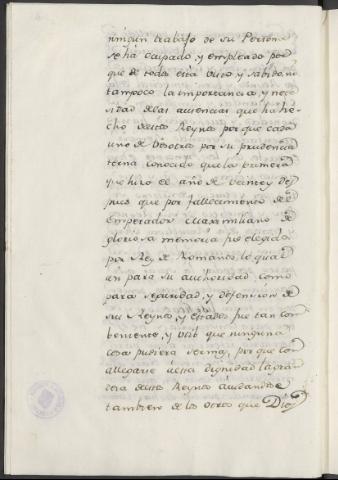 ningun trabajo de su Persona
se ha ocupado y empleado por
que de todos esta visto y sabido, ni
tampoco la importancia y nece
sidad de las ausencias que ha he
cho destos Reynos por que cada
uno de vosotros por su prudencia
terna conocido que la primera
que hizo el año de veinte y des
pues que por fallecimiento del
Emperador Maximiliano de
gloriosa memoria fue elegido
por Rey de Romanos lo qual
an para su authoridad como
para seguridad, y defension de
sus Reynos, y estados fue tan con
beniente, y util que ninguna
cosa pudiera ser mas, por que co
allegarse a esta dignidad la gran
deza destos Reynos ayudandose
tambien de los otros que Dios